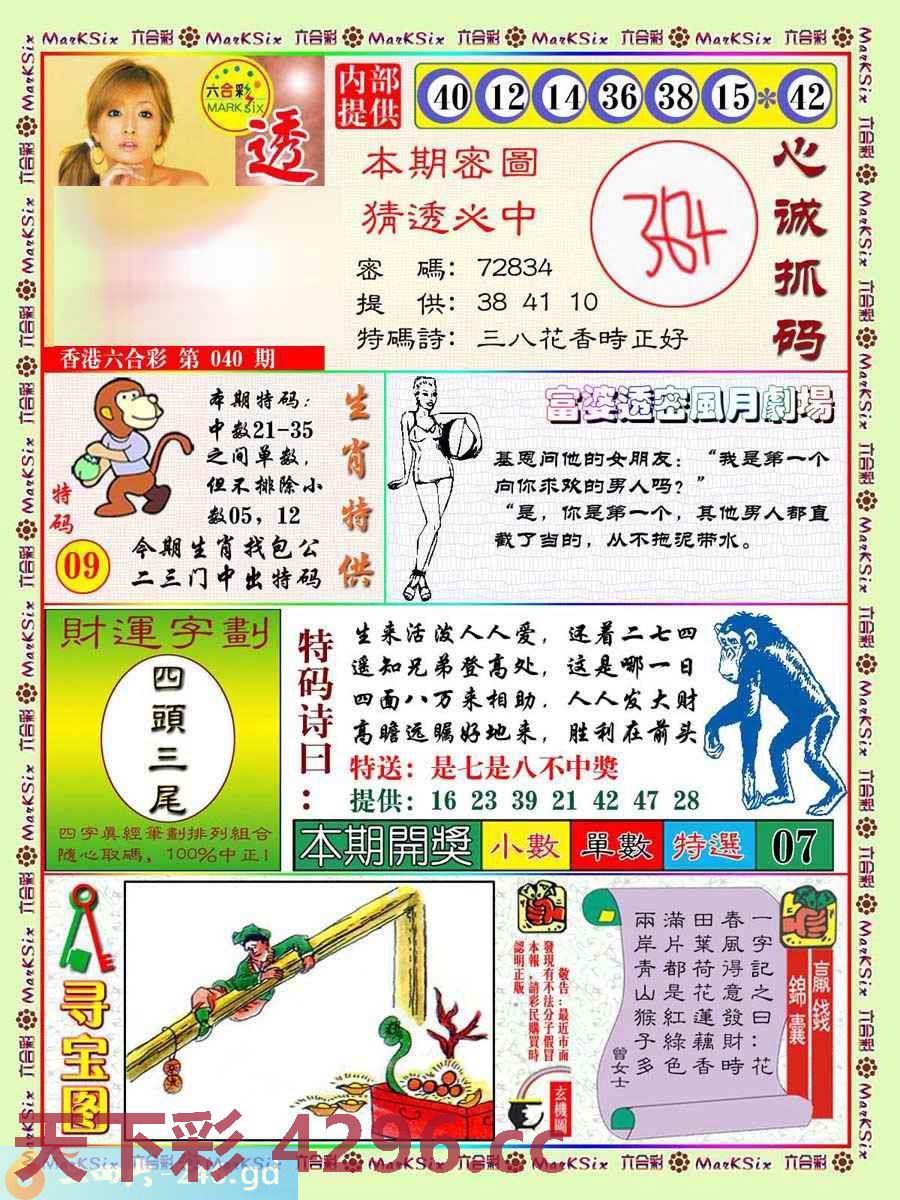 MarKSix 六合彩 MarKSix 六合彩 MarKSix 六合彩 MarKSix 六合彩 MarKSix 六合彩
六合彩
MARK six
透
内部
提供
40 12 14 36 38 15 * 42
本期密圖
猜透必中
密 碼：72834
提 供：38 41 10
特碼詩：三八花香時正好
384
心诚抓码
香港六合彩 第 040 期
本期特码：
中数21-35
之间单数，
但不排除小
数05，12
特码
09
今期生肖找包公
二三门中出特码
生肖特供
富婆透密風月劇場
基恩问他的女朋友：“我是第一个
向你求欢的男人吗？”
“是，你是第一个，其他男人都直
截了当的，从不拖泥带水。
財運字劃
四頭三尾
四字真經筆劃排列組合
隨心取碼，100%中正!
特码诗曰：
生来活泼人人爱，还着二七四
遥知兄弟登高处，这是哪一日
四面八万来相助．人人发大财
高瞻远瞩好地来，胜利在前头
特送：是七是八不中獎
提供：16 23 39 21 42 47 28
本期開獎 小數 單數 特選 07
寻宝图
敬告：最近市面
發現有不法分子假冒
本報，請彩民購買時
認明正版。
玄機圖
贏錢
錦囊
一字記之曰：花
春風得意發財時
田葉荷花蓮藕香
滿片都是紅綠色
兩岸青山猴子多
曾女士
天下彩 4296.cc
246.gd
MarKSix 六合彩 MarKSix 六合彩 MarKSix 六合彩 MarKSix 六合彩 MarKSix 六合彩